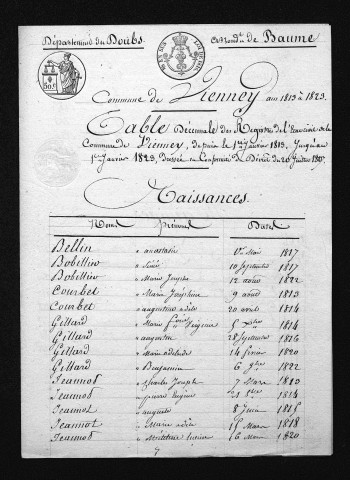 Département du Doubs. Arrond.t de Baume
50 c
Commune de Vienney ans 1813 à 1823.
Table Décennale des Registres de l'Etat civil de la
Commune de Vienney, depuis le 1er Janvier 1813. Jusqu'au
1er Janvier 1823, Dressée en Conformité du Décret du 20 Juillet 1807.
Naissances.
Noms Prénoms Dates
Bellin " anastasie 1817
Bobillier " 10 Septembre 1817
Bobillier " Marie Josephe 12 aout 1822
Courbet " Marie Joséphine 9 aout 1813
Courbet " augustine adèle 20 avril 1814
Gillard " Marie 5 1814
Gillard " augustin 28 Septembre 1816
Gillard " Marie adelaide 14 février 1820
Gillard " Benjamin 6 9bre 1822
Jeannot " Charles Joseph 7 Mars 1813
Jeannot " pierre Eugène 21 1814
Jeannot " auguste 8 Juin 1815
Jeannot " Marie adèle 15 Mars 1818
Jeannot " 16 Mars 1820